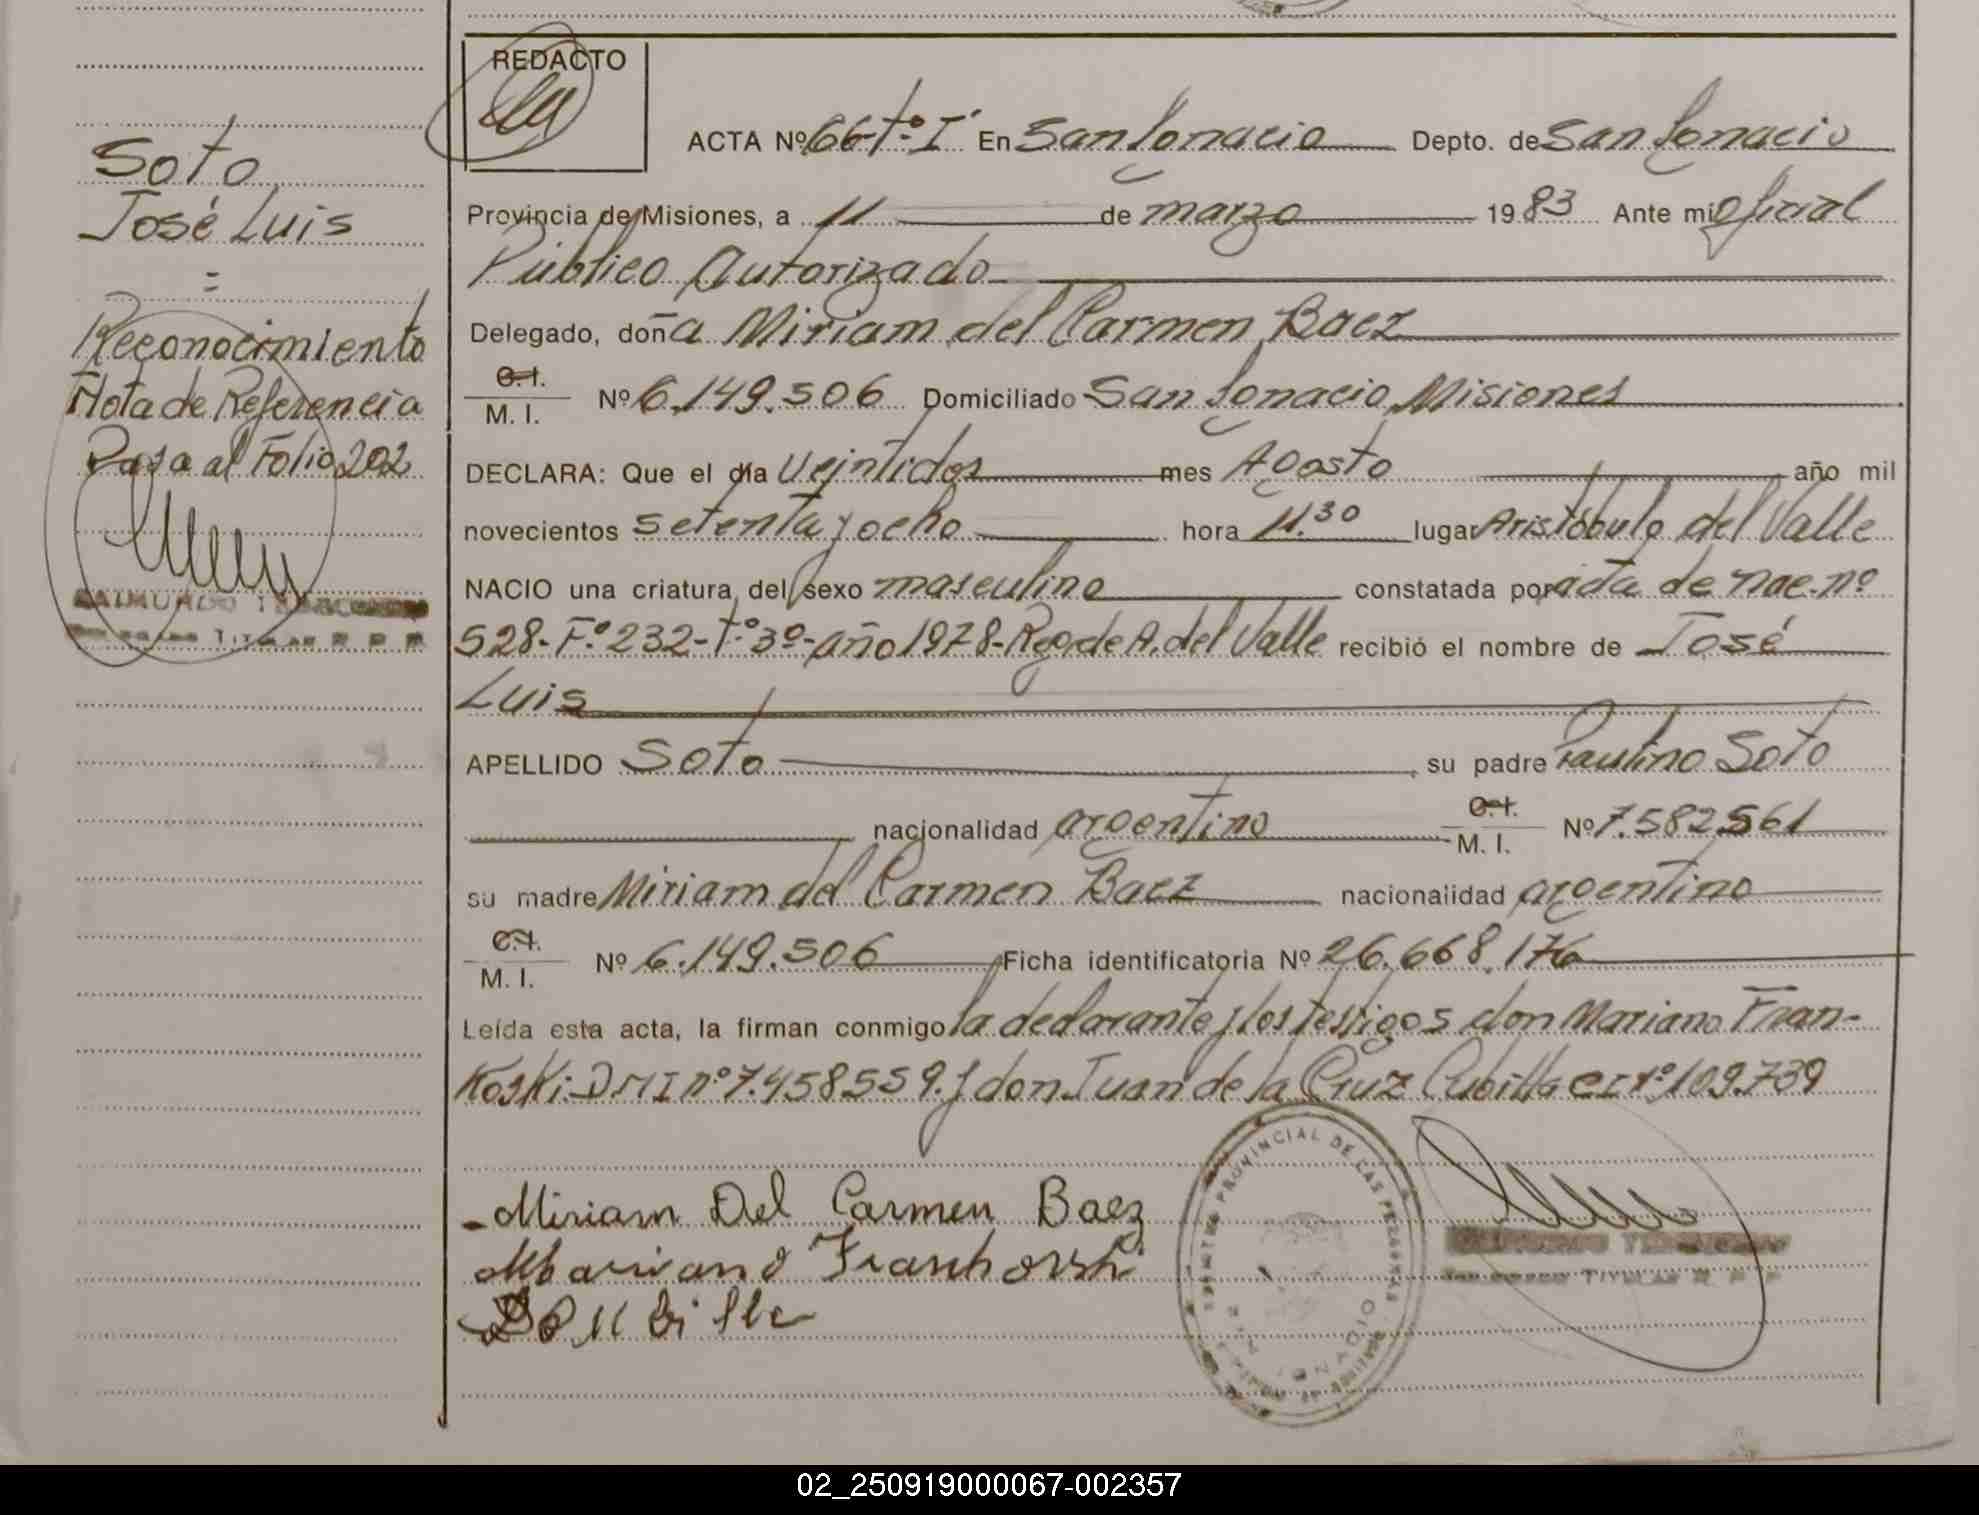 Soto
José Luis
=
Reconocimiento
Nota de Referencia
Pasa al Folio 202
TITULAR R P P
REDACTO
ACTA Nº 66-tº I En San Ignacio Depto. de San Ignacio
Provincia de Misiones, a 11 de marzo 1983 Ante mi Oficial
Público Autorizado
Delegado, doña Miriam del Carmen Baez
C. I.
M. I. Nº 6.149.506 Domiciliado San Ignacio Misiones
DECLARA: Que el día veintidos mes Agosto año mil
novecientos setenta y ocho hora 11.30 lugar Aristóbulo del Valle
NACIO una criatura del sexo masculino constatada por acta de nac. nº
528-Fº 232-tº 3º-año 1978-Reg de A. del Valle recibió el nombre de José
Luis
APELLIDO Soto su padre Paulino Soto
nacionalidad argentino C. I. M. I. Nº 7.582.561
su madre Miriam del Carmen Baez nacionalidad argentino
C. I.
M. I. Nº 6.149.506 Ficha identificatoria Nº 26.668.176
Leída esta acta, la firman conmigo la declarante y los testigos don Mariano Fran-
Koski DMI nº 7.458559. y don Juan de la Cruz Cubilla CI nº 109.739
- Miriam Del Carmen Baez
Mariano
PROVINCIAL DE LAS PERSONAS
TITULAR R P P
02_250919000067-002357